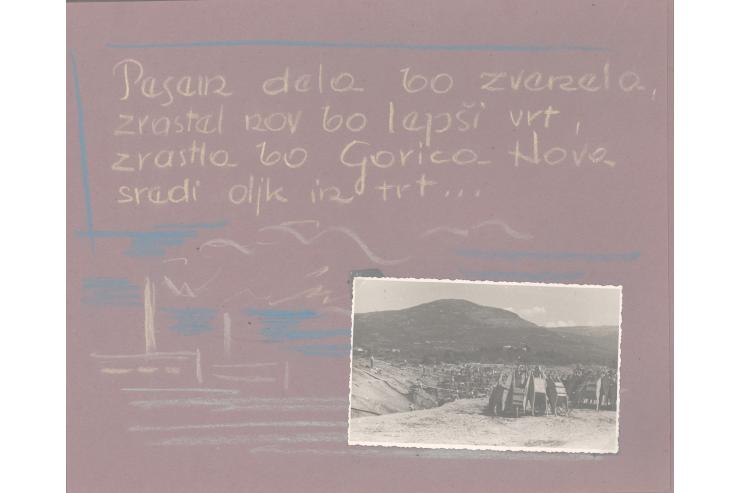 Pesem dela bo zvenela,
zrastel nov bo lepši vrt,
zrastla bo Gorica Nova
sredi oljk in trt...